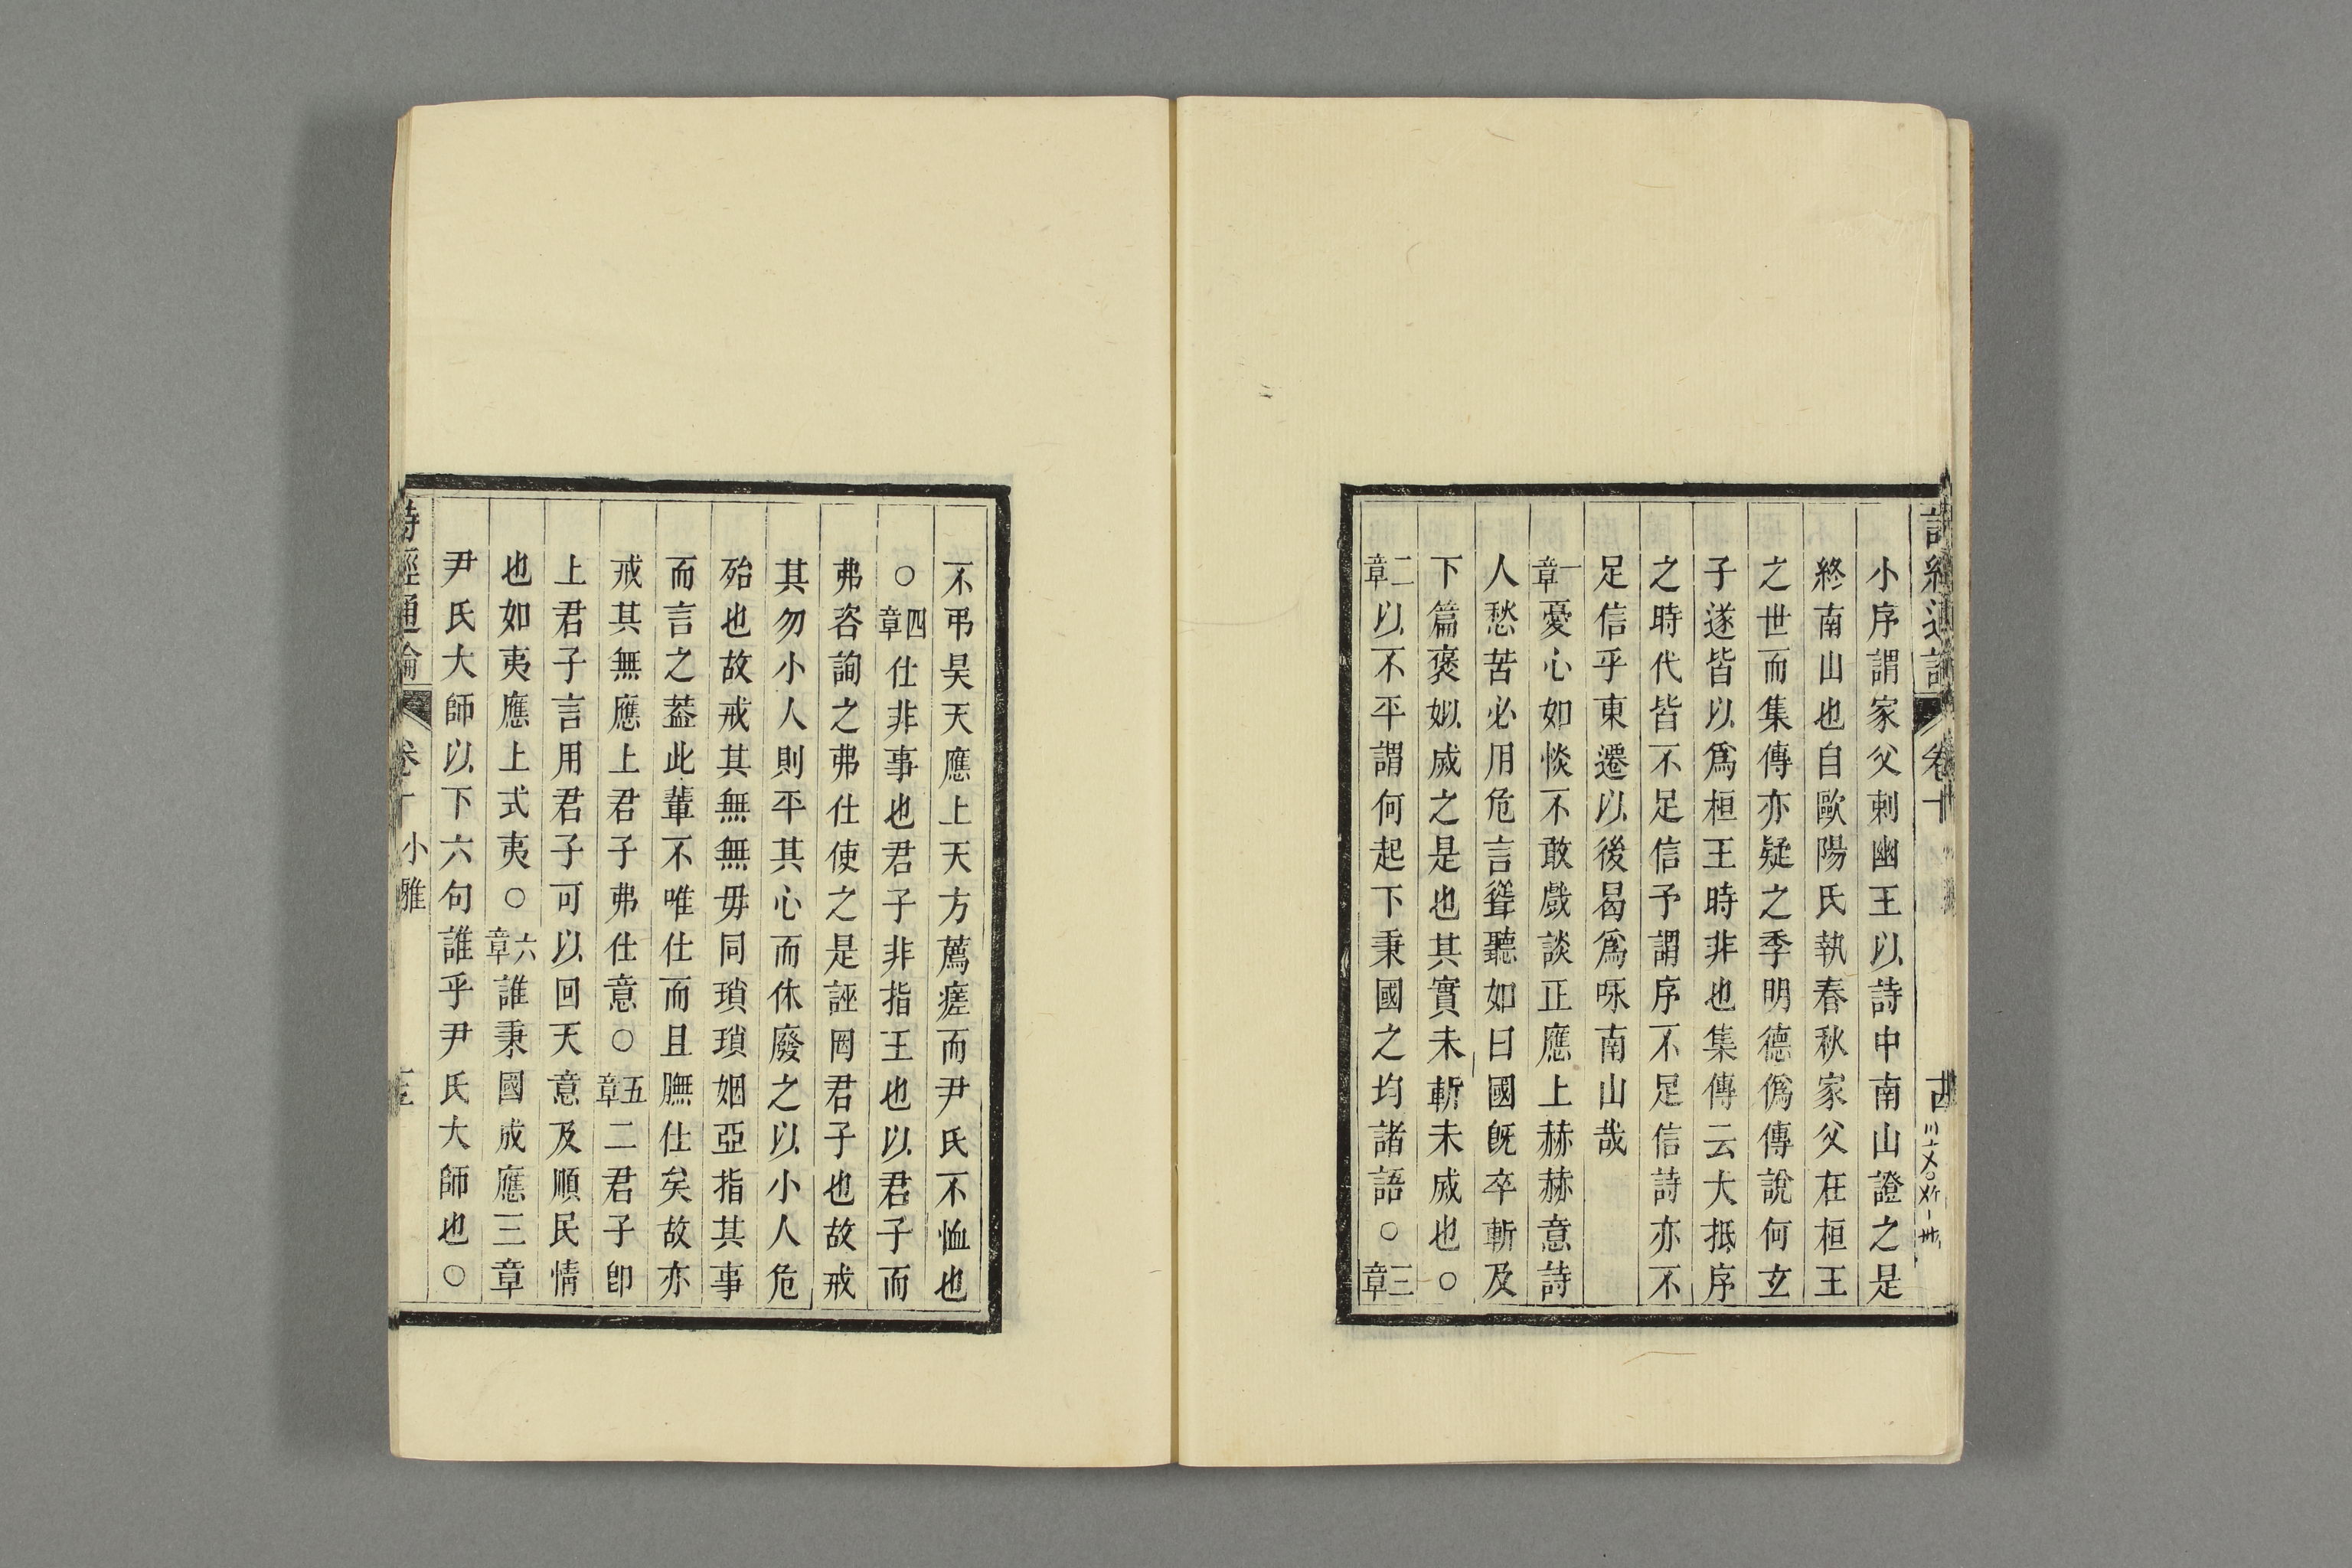 小序謂家父刺幽王以詩中南山證之是
終南山也自歐陽氏執春秋家父在桓王
之世而集傳亦疑之季明德僞傳說何玄
子遂皆以爲桓王時非也集傳云大抵序
之時代皆不足信予謂序不足信詩亦不
足信乎東遷以後曷爲咏南山哉
一章憂心如惔不敢戲談正應上赫赫意詩
人愁苦必用危言聳聽如曰國旣卒斬及
下篇褒姒烕之是也其實未斬未烕也○
二章以不平謂何起下秉國之均諸語○三章
不弔昊天應上天方薦瘥而尹氏不恤也
○四章仕非事也君子非指王也以君子而
弗咨詢之弗仕使之是誣罔君子也故戒
其勿小人則平其心而休廢之以小人危
殆也故戒其無無毋同瑣瑣姻亞指其事
而言之葢此輩不唯仕而且膴仕矣故亦
戒其無應上君子弗仕意○五章二君子卽
上君子言用君子可以回天意及順民情
也如夷應上式夷○六章誰秉國成應三章
尹氏大師以下六句誰乎尹氏大師也○
詩經通論 卷十 小雅